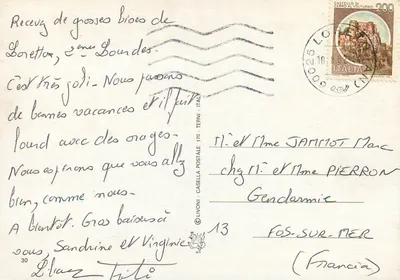 Recevez de grosses bises de
Loretton, 2ème Lourdes.
C'est très joli. Nous passons
de bonnes vacances et il fait
lourd avec des orages.
Nous espérons que vous allez
bien, comme nous.
A bientôt. Gros baisers à
vous, Sandrine et Virginie
30
Titi
© UNIONI - CASELLA POSTALE 175 - TERNI - ITALY
60025 LO
ITALIA
200
Mr et Mme JAMMOT Marc
chg Mr et Mme PIERRON
Gendarmie
13 FOS-SUR-MER
(Francia)